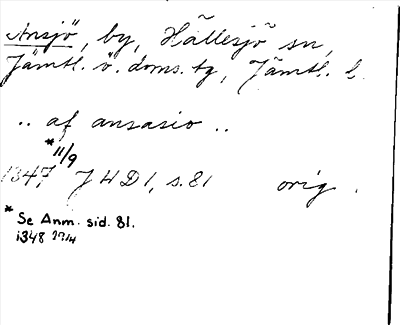 Ansjö, by, Hällesjö sn,
Jämtl. ö. doms. tg, Jämtl. l.
.. af ansasio ..
* 11/9
1347 JHD1, s. 81 orig.
* Se Anm. sid. 81.
1348